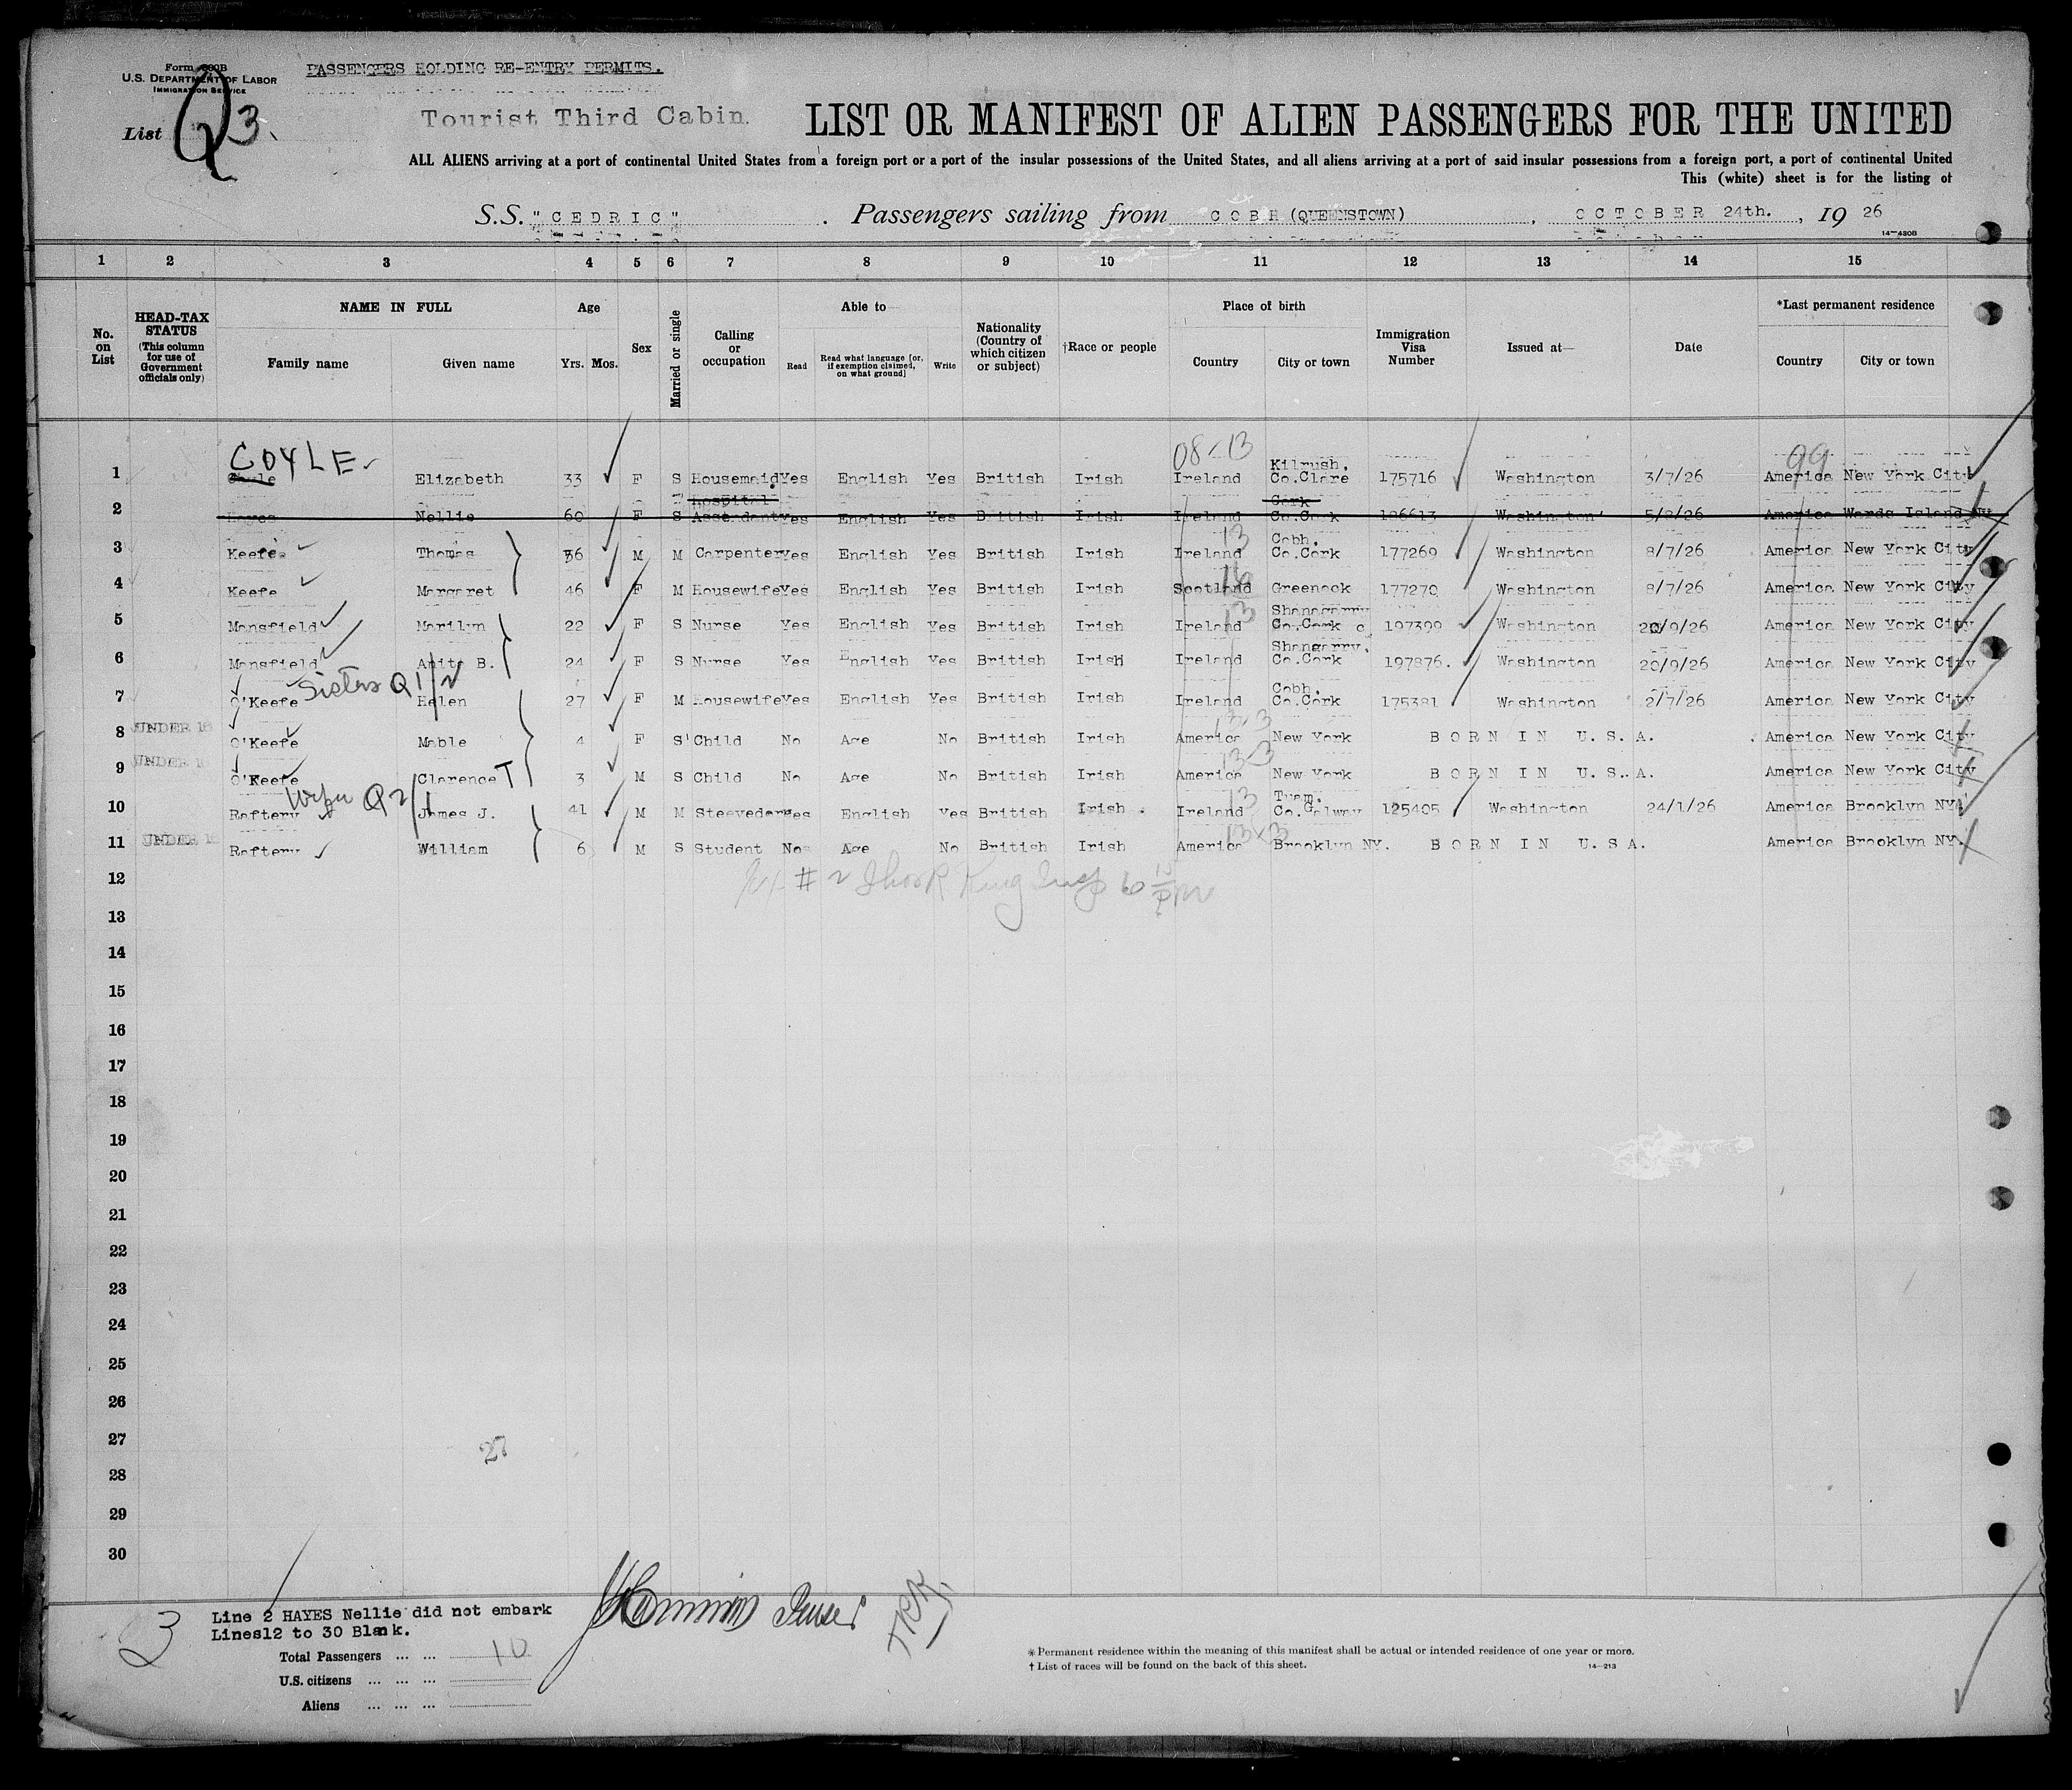 Form 630B
U.S. DEPARTMENT OF LABOR
IMMIGRATION SERVICE
PASSENGERS HOLDING RE-ENTRY PERMITS.
List Q 3.
Tourist Third Cabin.
LIST OR MANIFEST OF ALIEN PASSENGERS FOR THE UNITED
ALL ALIENS arriving at a port of continental United States from a foreign port or a port of the insular possessions of the United States, and all aliens arriving at a port of said insular possessions from a foreign port, a port of continental United
This (white) sheet is for the listing of
S.S. "CEDRIC" . Passengers sailing from COBH (QUEENSTOWN) , OCTOBER 24th. , 19 26
14—430B
1 2 3 4 5 6 7 8 9 10 11 12 13 14 15
No. on List
HEAD-TAX STATUS (This column for use of Government officials only)
NAME IN FULL
Family name Given name
Age
Yrs. Mos.
Sex
Married or single
Calling or occupation
Able to
Read Read what language [or, if exemption claimed, on what ground] Write
Nationality (Country of which citizen or subject)
†Race or people
Place of birth
Country City or town
Immigration Visa Number
Issued at—
Date
*Last permanent residence
Country City or town
COYLE 08-13 99
1 Coyle Elizabeth 33 F S Housemaid Yes English Yes British Irish Ireland Kilrush, Co.Clare 175716 Washington 3/7/26 America New York City
2 Hayes Nellie 60 F S Hospital Yes English Yes British Irish Ireland Cork Co.Cork 186613 Washington 5/8/26 America Wards Island NY
3 Keefe Thomas 56 M M Carpenter Yes English Yes British Irish Ireland 13 Cobh. Co.Cork 177269 Washington 8/7/26 America New York City
4 Keefe Margaret 46 F M Housewife Yes English Yes British Irish Scotland 16 Greenock 177270 Washington 8/7/26 America New York City
5 Mansfield Marilyn 22 F S Nurse Yes English Yes British Irish Ireland 13 Shanagarry Co.Cork 197399 Washington 20/9/26 America New York City
6 Mansfield Anita B. 24 F S Nurse Yes English Yes British Irish Ireland Shangarry. Co.Cork 197876. Washington 20/9/26 America New York City
Sisters Q 1/2
7 O'Keefe Helen 27 F M Housewife Yes English Yes British Irish Ireland Cobh. Co.Cork 175381 Washington 2/7/26 America New York City
8 UNDER 16 O'Keefe Mable 4 F S Child No Age No British Irish America New York BORN IN U.S.A. America New York City
9 UNDER 16 O'Keefe Clarence T 3 M S Child No Age No British Irish America New York BORN IN U.S.A. America New York City
Q 2/1
10 Raftery James J. 41 M M Steevedore Yes English Yes British Irish Ireland 13 Tuam. Co.Galway 125405 Washington 24/1/26 America Brooklyn NY.
11 UNDER 16 Raftery William 6 M S Student No Age No British Irish America Brooklyn NY. BORN IN U.S A. America Brooklyn NY.
12
13
14
15
16
17
18
19
20
21
22
23
24
25
26
27
27
28
29
30
3
Line 2 HAYES Nellie did not embark
Lines12 to 30 Blank.
Total Passengers ... ... 10
U.S. citizens ... ... ...
Aliens ... ... ...
* Permanent residence within the meaning of this manifest shall be actual or intended residence of one year or more.
† List of races will be found on the back of this sheet.
14—213